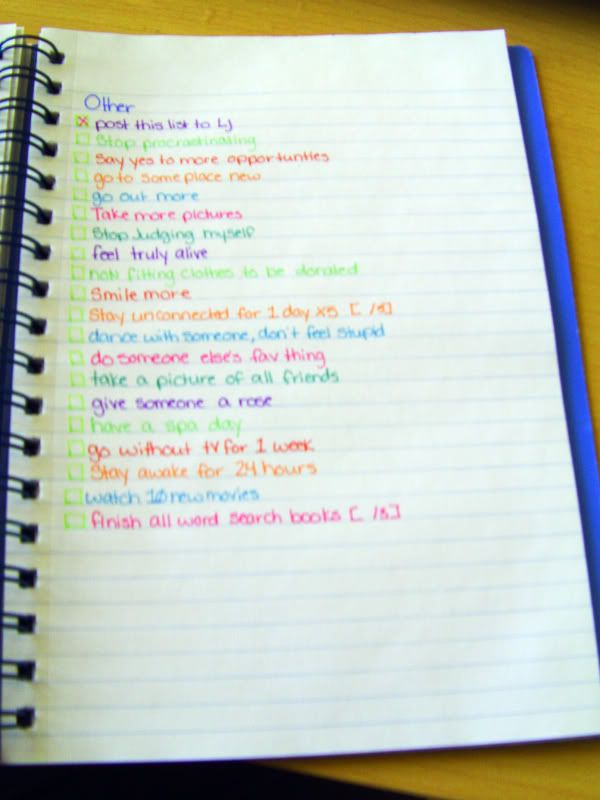 Other
x post this list to LJ
Stop procrastinating
Say yes to more opportunties
go to someplace new
go out more
Take more pictures
Stop Judging myself
feel truly alive
not fitting clothes to be donated
Smile more
Stay unconnected for 1 day x5 [ /5]
dance with someone, don't feel stupid
do someone else's fav thing
take a picture of all friends
give someone a rose
have a spa day
go without tv for 1 week
Stay awake for 24 hours
watch 10 new movies
finish all word search books [ /5]